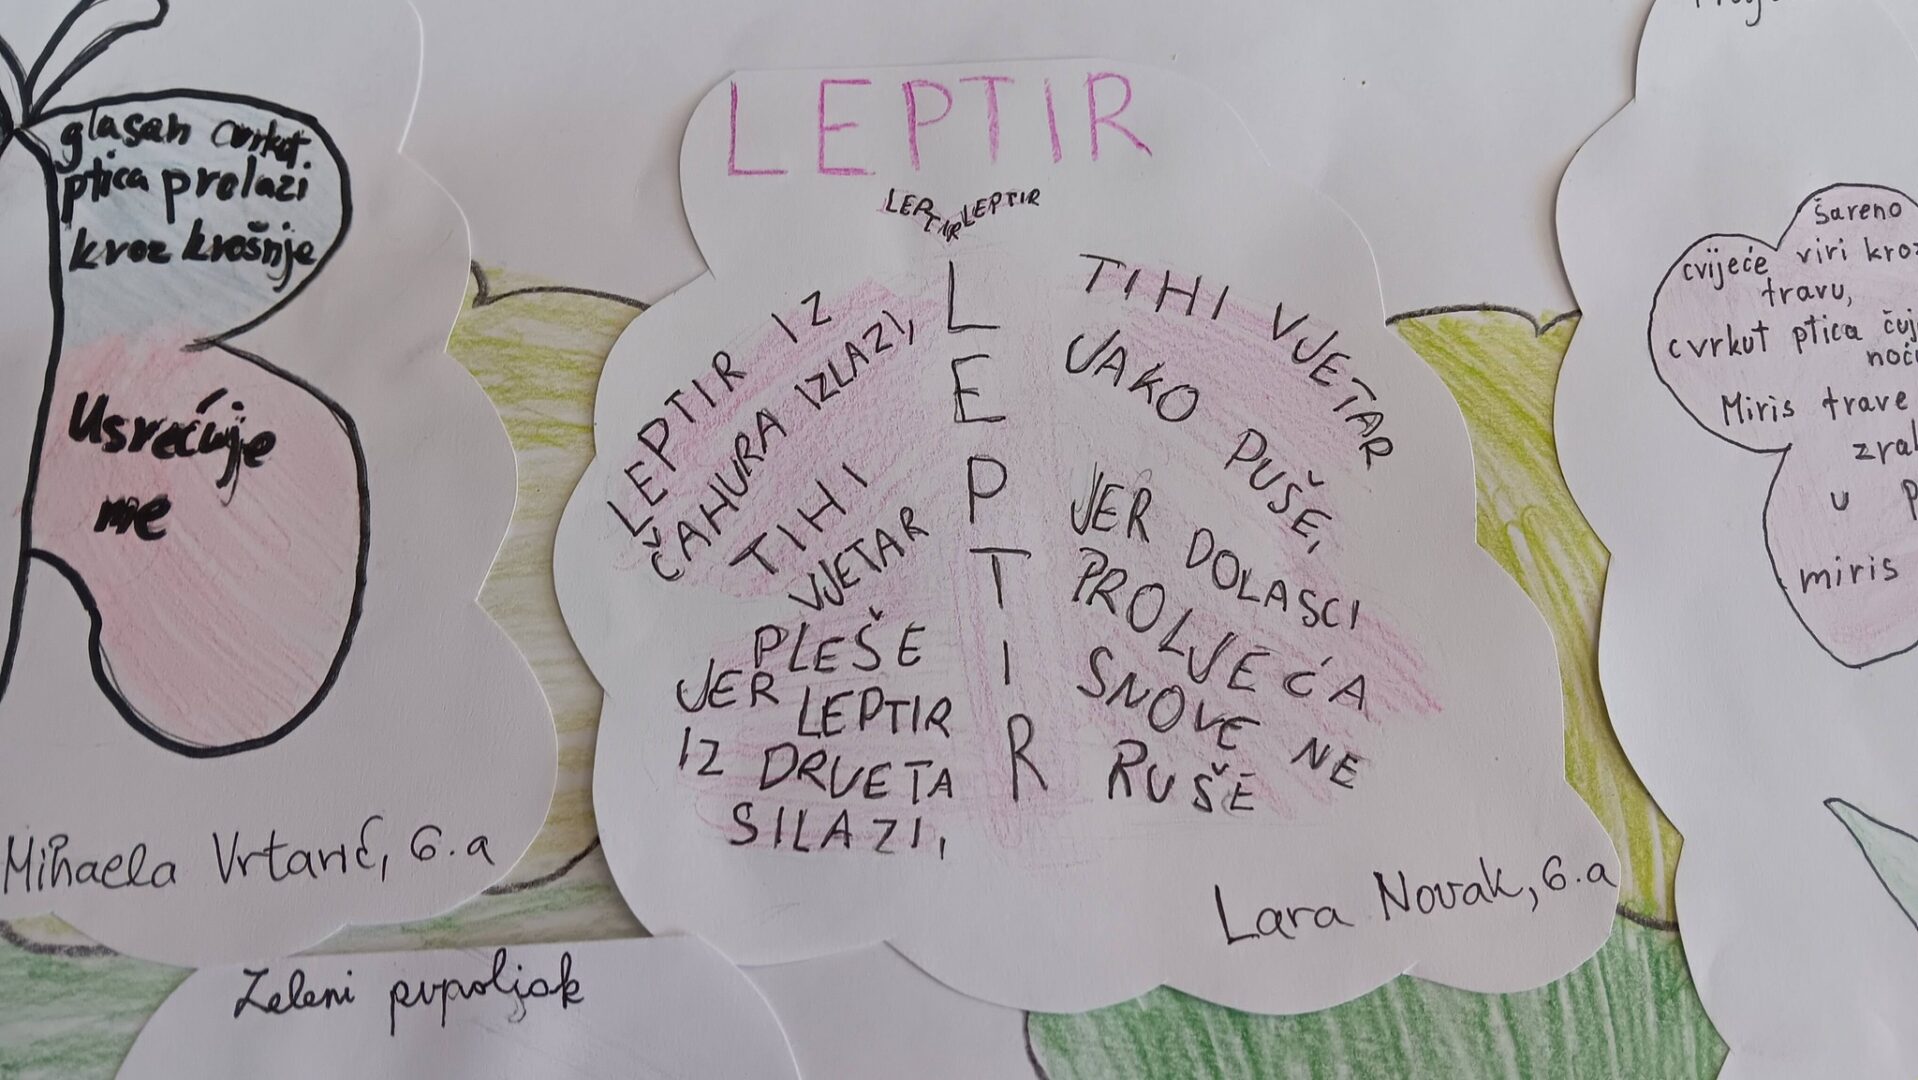 glasan cvrkut
ptica prolazi
kroz krošnje
Usrećuje
me
Mihaela Vrtarić, 6.a
LEPTIR
LEPTIR LEPTIR
LEPTIR IZ
ČAHURA IZLAZI,
TIHI
VJETAR
PLEŠE
JER LEPTIR
IZ DRVETA
SILAZI,
LEPTIR
TIHI VJETAR
JAKO PUŠE,
JER DOLASCI
PROLJEĆA
SNOVE NE
RUŠE
Lara Novak, 6.a
Zeleni pupoljak
šareno
cvijeće viri kroz
travu,
cvrkut ptica
Miris trave
u
miris